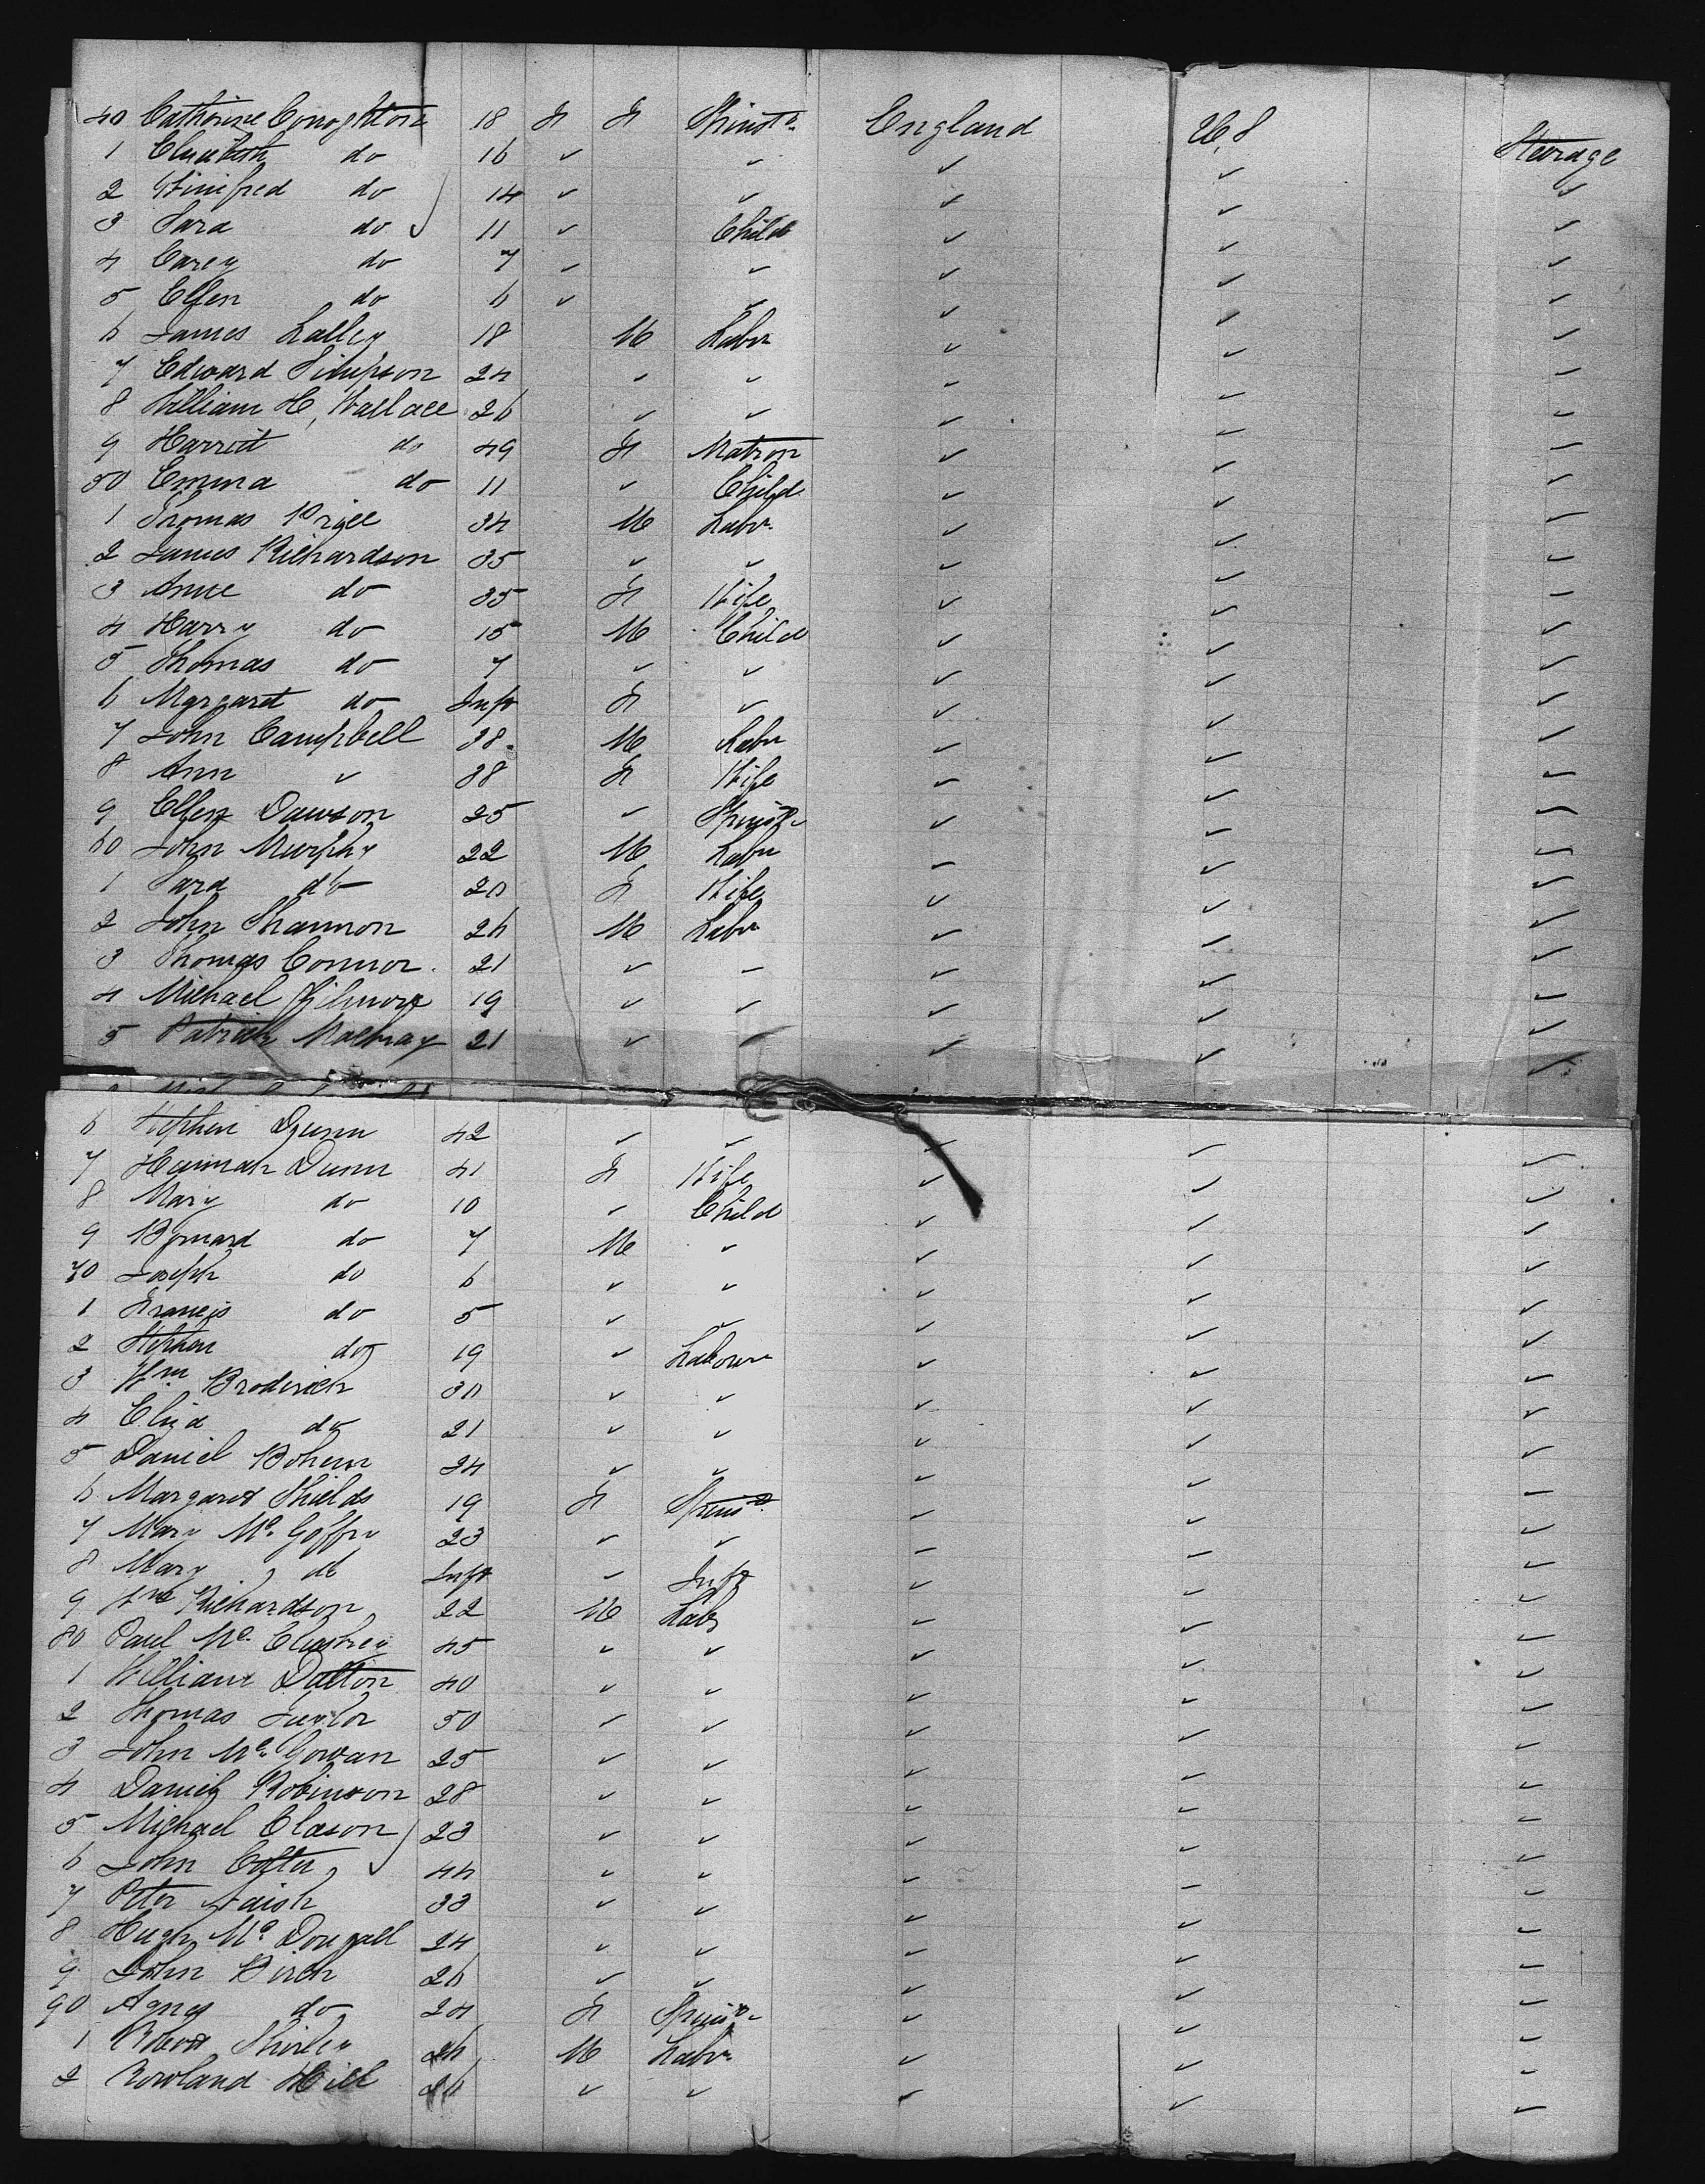 40 Catherine Conoghton 18 F F Spinstr England U,S Steerage
1 Elizabeth do 16 ✓ ✓ ✓ ✓ ✓
2 Winifred do 14 ✓ ✓ ✓ ✓ ✓
3 Sara do 11 ✓ Child ✓ ✓ ✓
4 Carey do 7 ✓ ✓ ✓ ✓ ✓
5 Ellen do 6 ✓ ✓ ✓ ✓ ✓
6 James Lalley 18 M Labr ✓ ✓ ✓
7 Edward Simpson 24 ✓ ✓ ✓ ✓ ✓
8 William H, Wallace 26 ✓ ✓ ✓ ✓ ✓
9 Harriet do 49 F Matron ✓ ✓ ✓
50 Emma do 11 ✓ Child ✓ ✓ ✓
1 Thomas Price 34 M Labr ✓ ✓ ✓
2 James Richardson 35 ✓ ✓ ✓ ✓ ✓
3 Anne do 35 F Wife ✓ ✓ ✓
4 Harry do 15 M Child ✓ ✓ ✓
5 Thomas do 7 ✓ ✓ ✓ ✓ ✓
6 Margaret do Inft F ✓ ✓ ✓ ✓
7 John Campbell 38 M Labr ✓ ✓ ✓
8 Ann ✓ 38 F Wife ✓ ✓ ✓
9 Ellen Dawson 25 ✓ Spinstr ✓ ✓ ✓
60 John Murphy 22 M Labr ✓ ✓ ✓
1 Sara do 20 F Wife ✓ ✓ ✓
2 John Shannon 26 M Labr ✓ ✓ ✓
3 Thomas Connor 21 ✓ ✓ ✓ ✓ ✓
4 Michael Gilmore 19 ✓ ✓ ✓ ✓ ✓
5 Patrick 21 ✓ ✓ ✓ ✓ ✓
6 Stephen Dunn 42 ✓ ✓ ✓ ✓ ✓
7 Hannah Dunn 41 F Wife ✓ ✓ ✓
8 Mary do 10 ✓ Child ✓ ✓ ✓
9 Bernard do 7 M ✓ ✓ ✓ ✓
70 Joseph do 6 ✓ ✓ ✓ ✓ ✓
1 Francis do 5 ✓ ✓ ✓ ✓ ✓
2 Stephen do 19 ✓ Labour ✓ ✓ ✓
3 Wm Broderick 30 ✓ ✓ ✓ ✓ ✓
4 Eliza do 21 ✓ ✓ ✓ ✓ ✓
5 Daniel 24 ✓ ✓ ✓ ✓ ✓
6 Margaret Shields 19 F Spinsr ✓ ✓ ✓
7 Mary Mc Goffry 23 ✓ ✓ ✓ ✓ ✓
8 Mary do Inft ✓ Inft ✓ ✓ ✓
9 Wm Richardson 22 M Labr ✓ ✓ ✓
80 Paul Mc 45 ✓ ✓ ✓ ✓ ✓
1 William Dalton 40 ✓ ✓ ✓ ✓ ✓
2 Thomas Taylor 50 ✓ ✓ ✓ ✓ ✓
3 John Mc Gowan 25 ✓ ✓ ✓ ✓ ✓
4 Daniel Robinson 28 ✓ ✓ ✓ ✓ ✓
5 Michael Clason 23 ✓ ✓ ✓ ✓ ✓
6 John 44 ✓ ✓ ✓ ✓ ✓
7 Peter 33 ✓ ✓ ✓ ✓ ✓
8 Hugh Mc Dougall 24 ✓ ✓ ✓ ✓ ✓
9 John Birch 26 ✓ ✓ ✓ ✓ ✓
90 Agnes do 24 F Spinsr ✓ ✓ ✓
1 Robert Shirley 26 M Labr ✓ ✓ ✓
2 Rowland Hill ✓ ✓ ✓ ✓ ✓